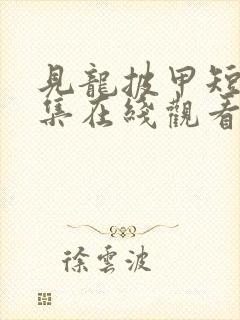 見龍披甲短
集在綫觀看
徐雲波